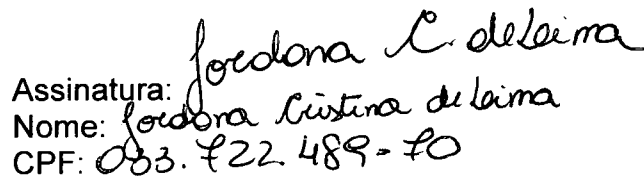 Assinatura: Jordona C. de Lima
Nome: Jordona Cristina de Lima
CPF: 033.722.489-70